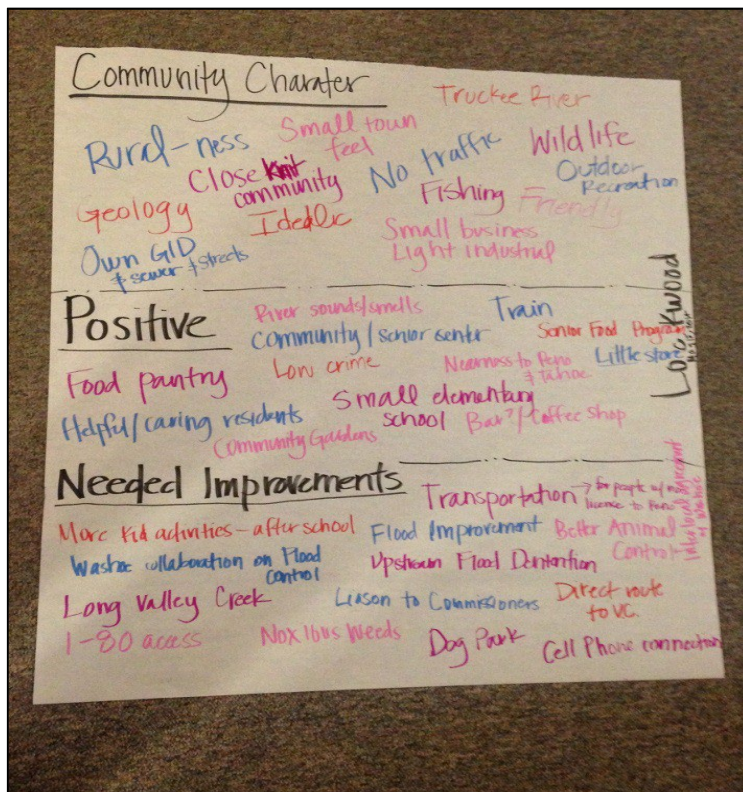 Community Charater
Truckee River
Rural-ness
Small town
feel
No traffic
Wildlife
Close Knit
community
Outdoor
Recreation
Fishing
Friendly
Geology
Idealic
Small business
Light industrial
Own GID
& sewer & streets
Lockwood
Positive
River sounds/smells
Train
Community/senior center
Senior Food Program
Low crime
Nearness to Reno
& Tahoe
Little store
Food pantry
Small elementary
school
Helpful/caring residents
Community Gardens
Bar?/Coffee Shop
Needed Improvements
Transportation → for people w/ no
licence to Reno
More Kid activities - after school
Flood Improvement
Better Animal
Control
Washoe collaboration on Flood
Control
Upstream Flood Dentention
Long Valley Creek
Liason to Commissioners
Direct route
to V.C.
I-80 access
Noxious Weeds
Dog Park
Cell Phone connection